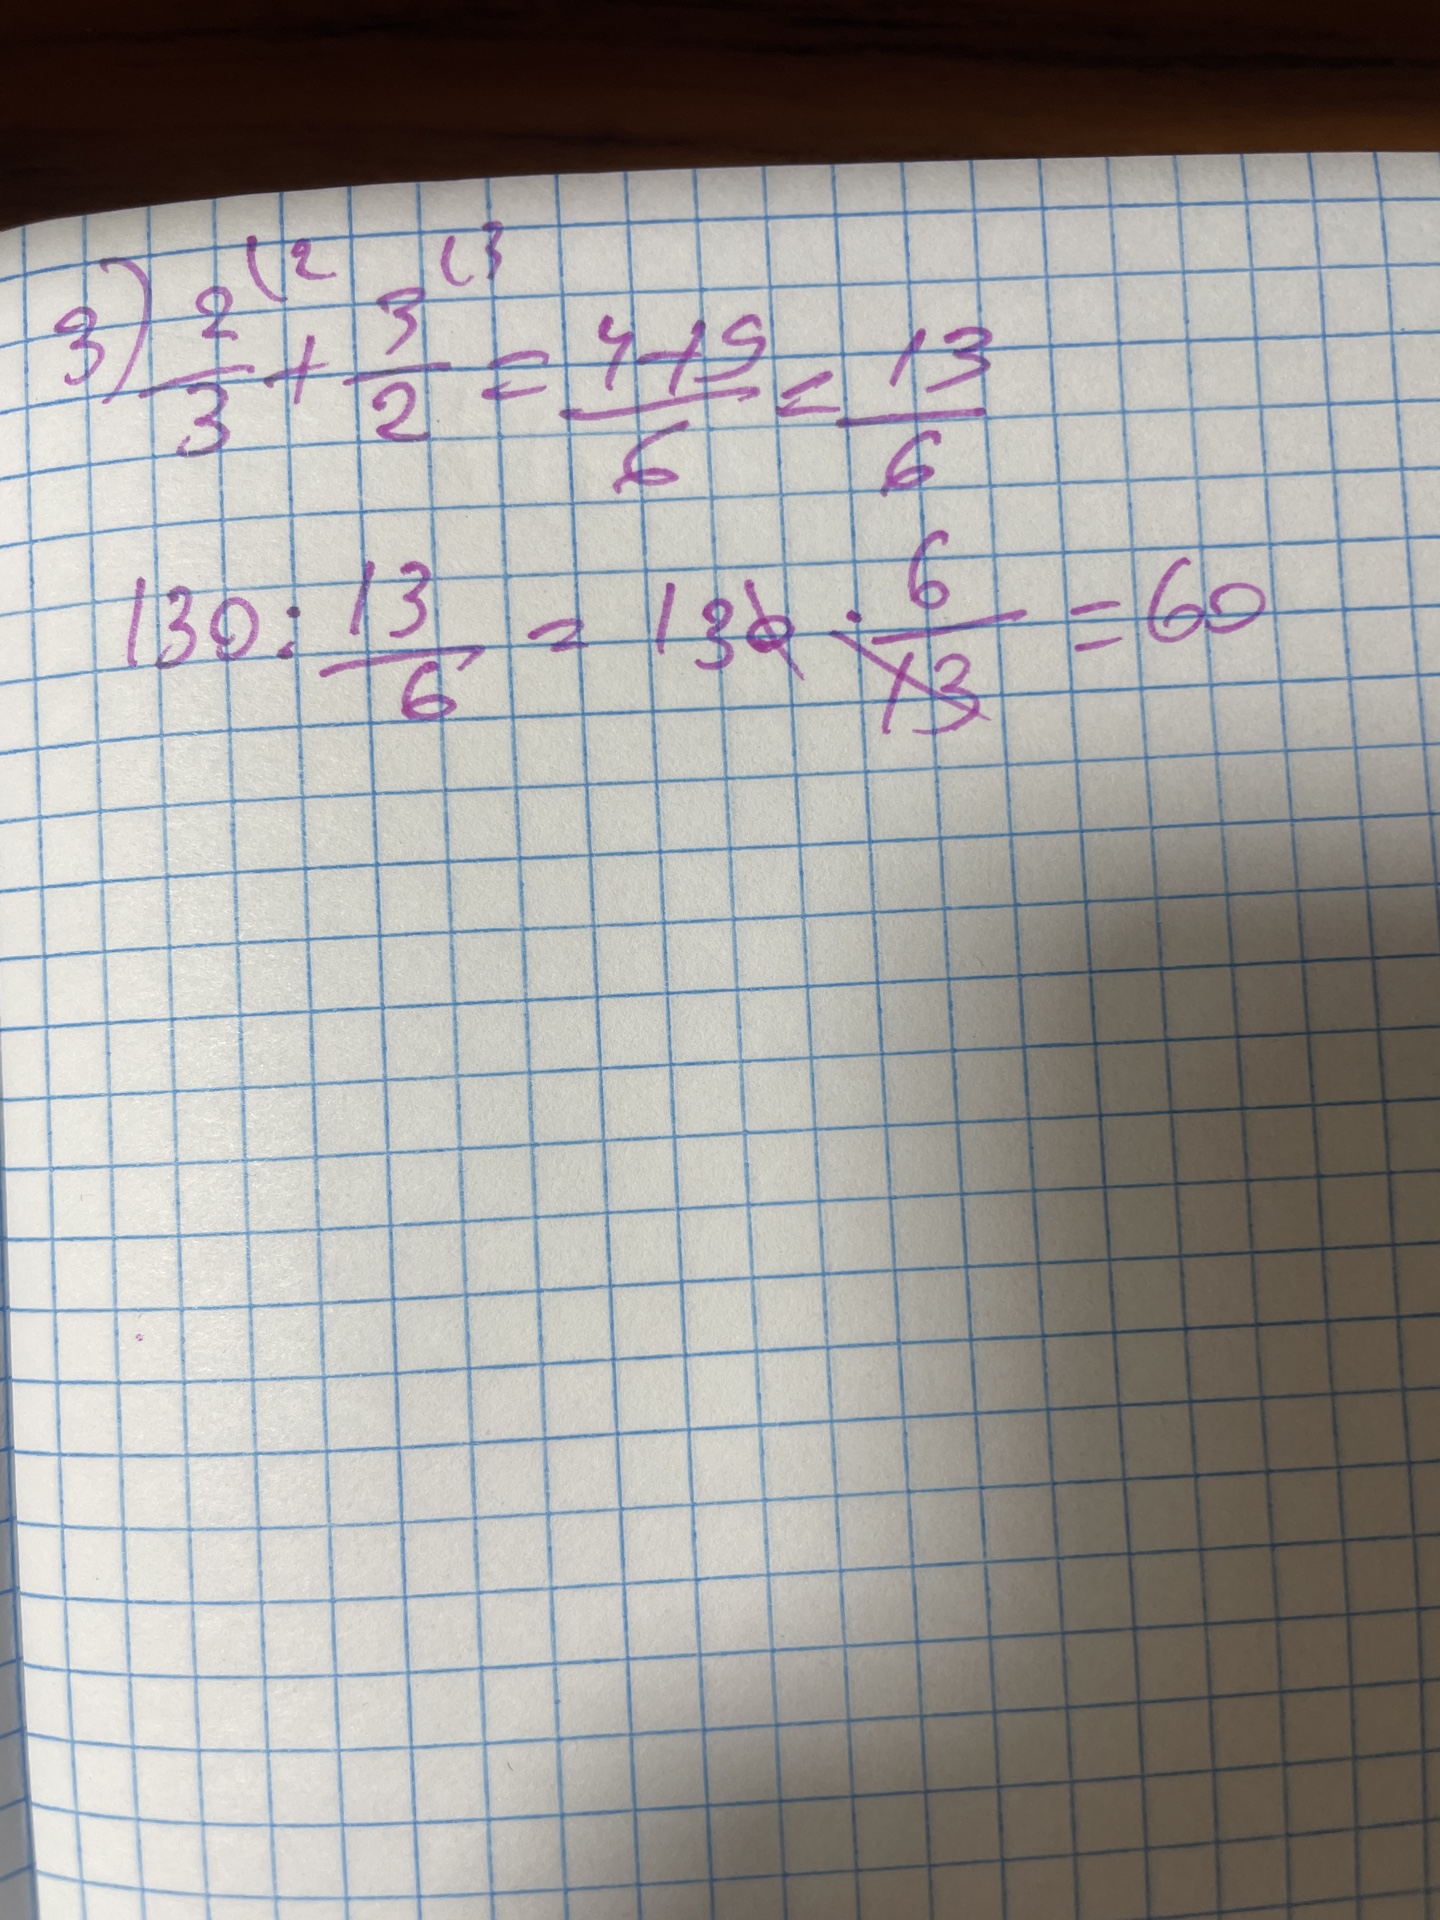 3) 2/3 (2 + 3/2 (3 = 4+9/6 = 13/6
130 : 13/6 = 130 · 6/13 = 60